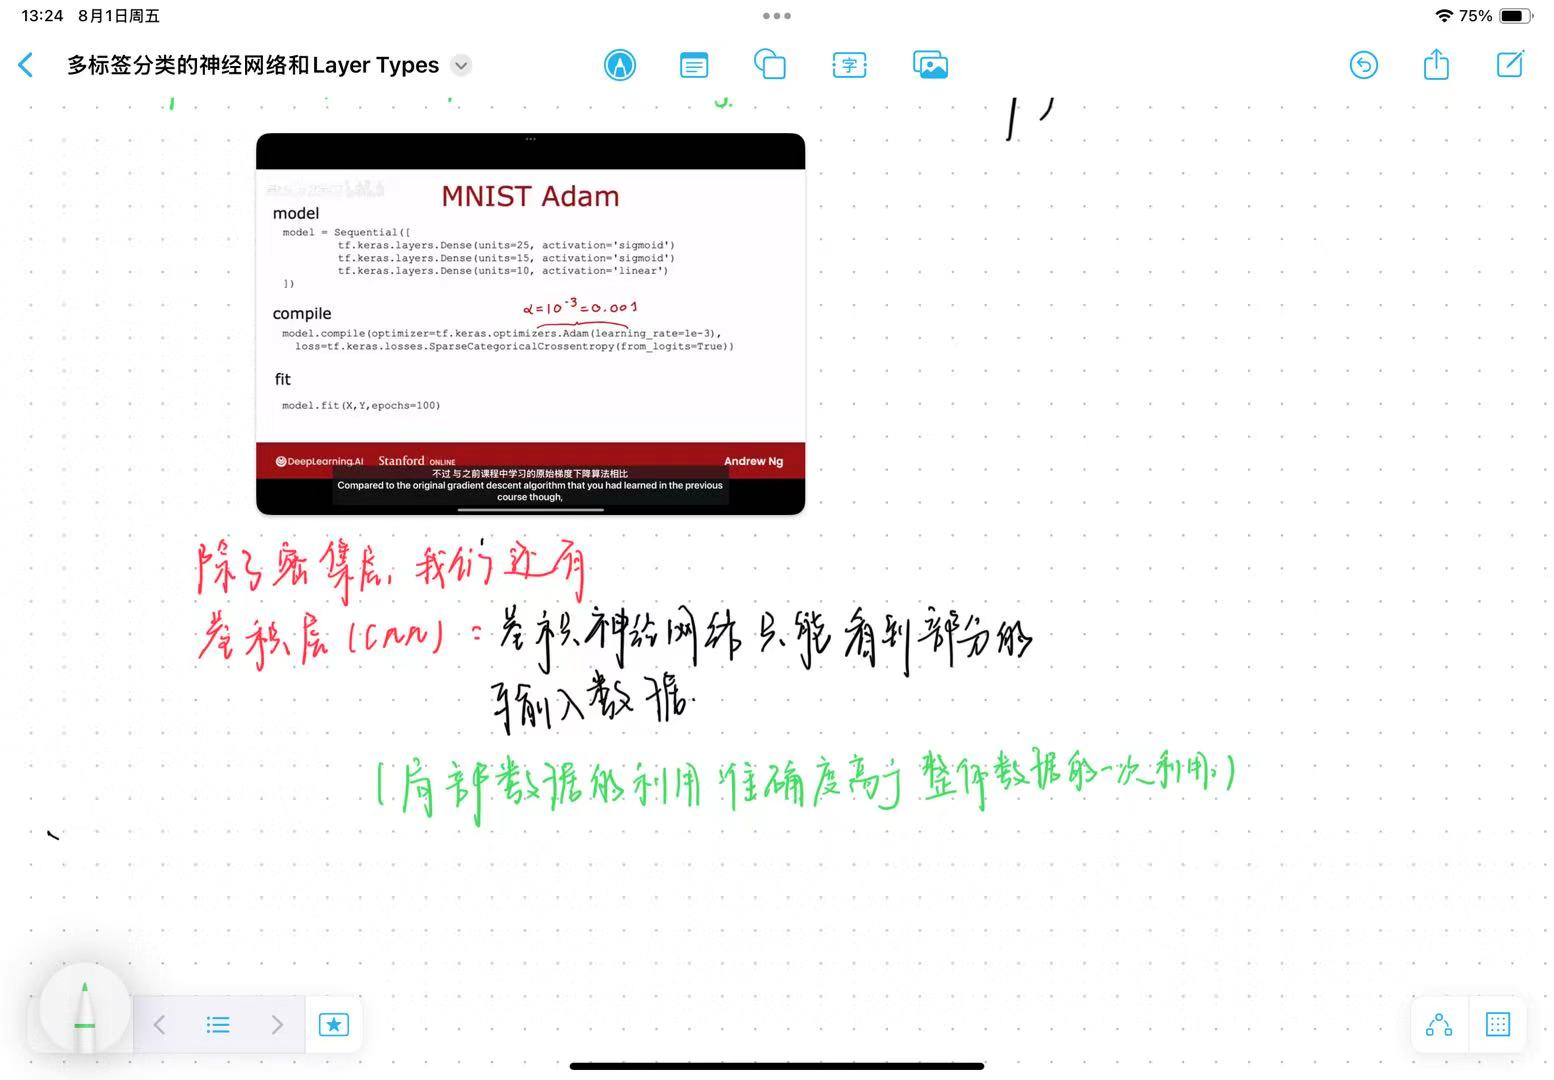 13:24 8月1日周五
75%
多标签分类的神经网络和Layer Types
字
MNIST Adam
model
model = Sequential([
tf.keras.layers.Dense(units=25, activation='sigmoid')
tf.keras.layers.Dense(units=15, activation='sigmoid')
tf.keras.layers.Dense(units=10, activation='linear')
])
α=10⁻³=0.001
compile
model.compile(optimizer=tf.keras.optimizers.Adam(learning_rate=1e-3),
loss=tf.keras.losses.SparseCategoricalCrossentropy(from_logits=True))
fit
model.fit(X,Y,epochs=100)
DeepLearning.AI Stanford ONLINE Andrew Ng
不过 与之前课程中学习的原始梯度下降算法相比
Compared to the original gradient descent algorithm that you had learned in the previous
course though,
除了密集层,我们还有
卷积层(cnn):卷积神经网络只能看到部分的
输入数据.
(局部数据的利用准确度高于整体数据的一次利用。)